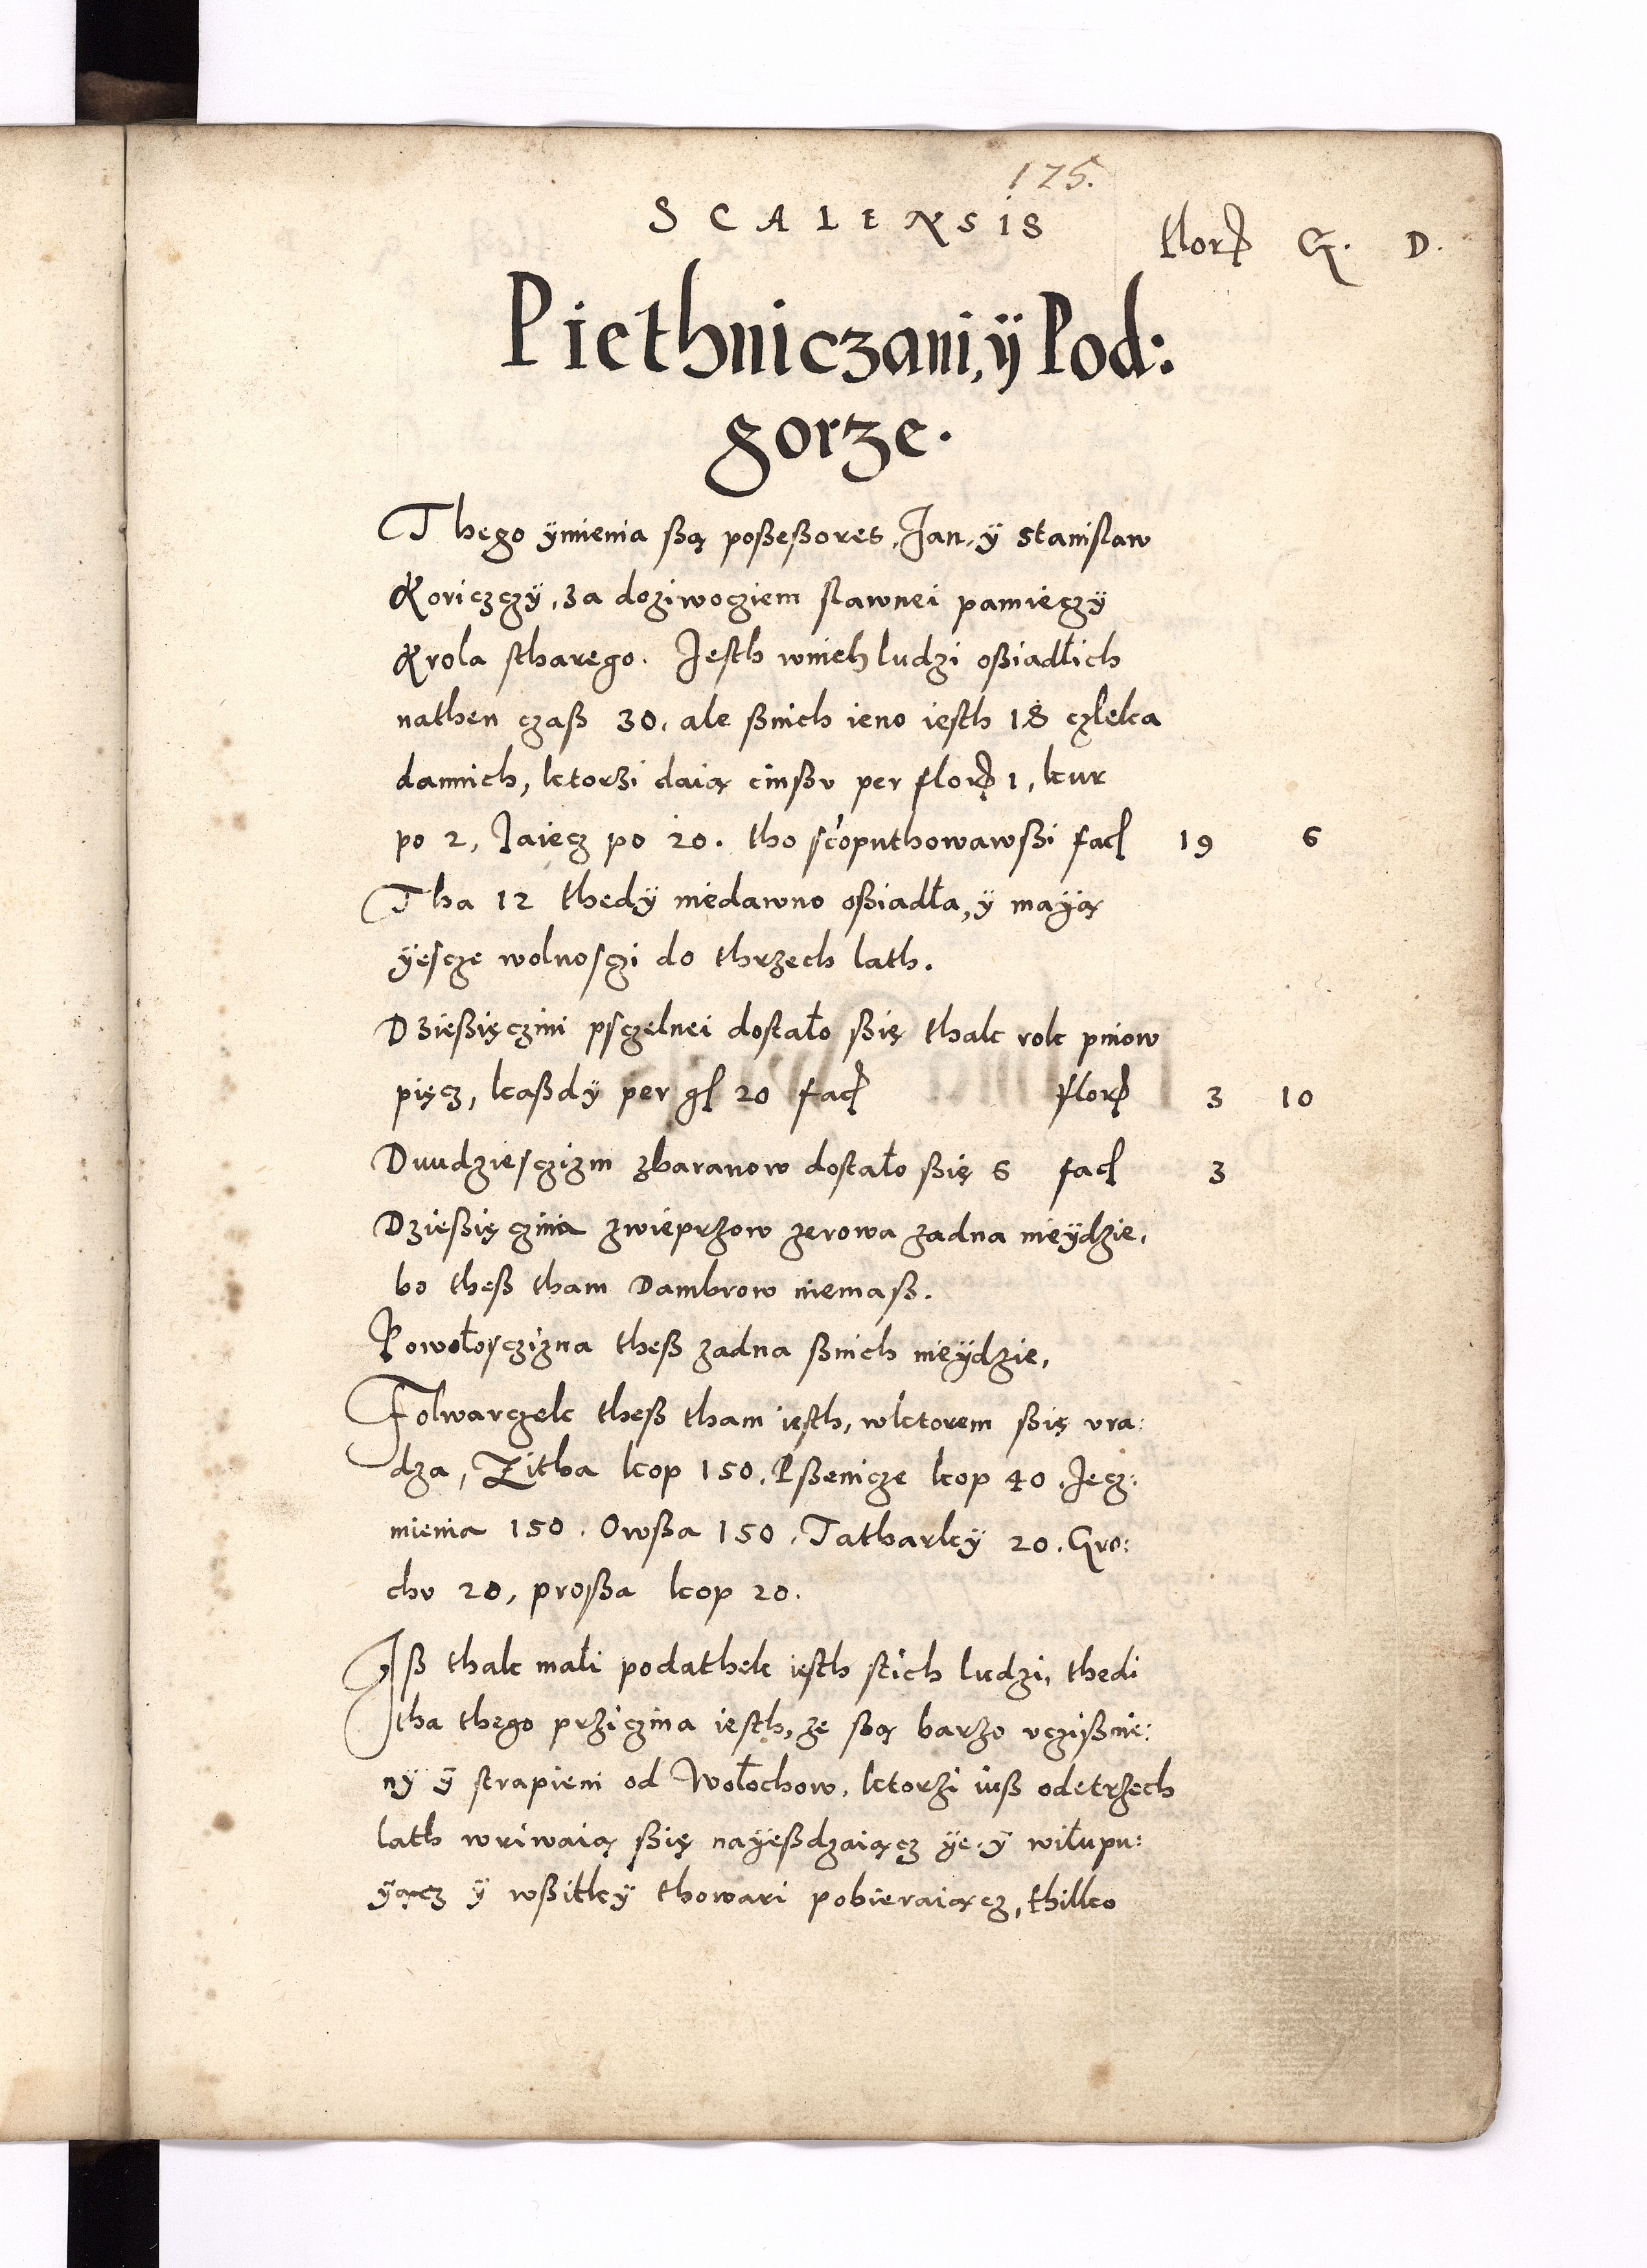 175.
SCALENSIS
flor G. D.
Piethniczani, ÿ Pod:
gorze.
Thego ÿmienia ßą poßeßores, Jan, ÿ Stanislaw
Koriczczÿ, za doziwociem slawnei pamieczÿ
Krola stharego. Jesth wnich ludzi oßiadłich
nathen czaß 30, ale ßnich ieno iesth 18 człeka
dannich, ktorzi daią cinßv per flor 1, kur
po 2, Jaiecz po 20. tho scoputhowawßi fac 19 6
Tha 12 thedÿ niedawno oßiadła, ÿ maÿą
ÿescze wolnosczi do thrzech lath.
Dzießięczini psczelnei dostało ßię thak rok pniow
pięcz, kaßdÿ per g 20 fac flor 3 10
Dwudziesczizni zbaranow dostało ßię 6 fac 3
Dzießięczina zwieprzow zerowa zadna nieÿdzie,
bo theß tham Dambrow niemaß.
Powołosczizna theß zadna ßnich nieÿdzie,
Folwarczek theß tham iesth, wktorem ßię vra:
dza, Zitha kop 150, Pßenicze kop 40, Jecz:
mienia 150, Owßa 150, Tatharkÿ 20, Gro:
chv 20, proßa kop 20.
Iß thak mali podathek iesth stich ludzi, thedi
tha thego prziczina iesth, ze ßą barzo vczißnie:
nÿ ÿ strapieni od Wołochow, ktorzi iuß odetrzech
lath wriwaią ßię naÿeßdzaiącz ÿe, ÿ wiłupu:
ÿącz ÿ wßitkÿ thowari pobieraiącz, thilko